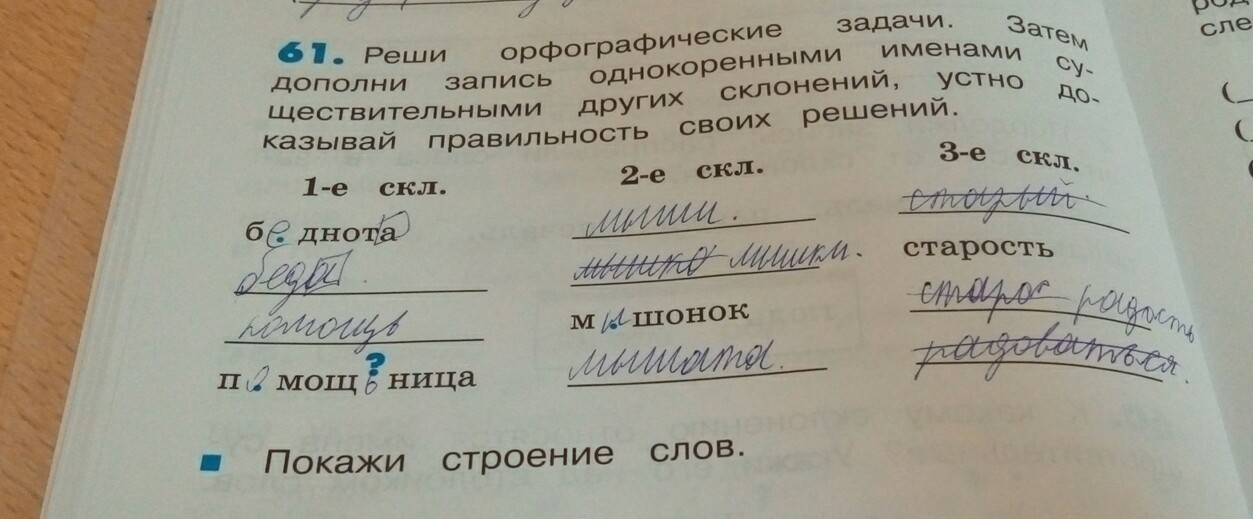 61. Реши орфографические задачи. Затем
дополни запись однокоренными именами су-
ществительными других склонений, устно до-
казывай правильность своих решений.
1-е скл. 2-е скл. 3-е скл.
бе днота мыши. старый
беда. мышко мышки. старость
помощь мы шонок старос радость
по мощ?ница мышата. радоваться.
Покажи строение слов.
сле